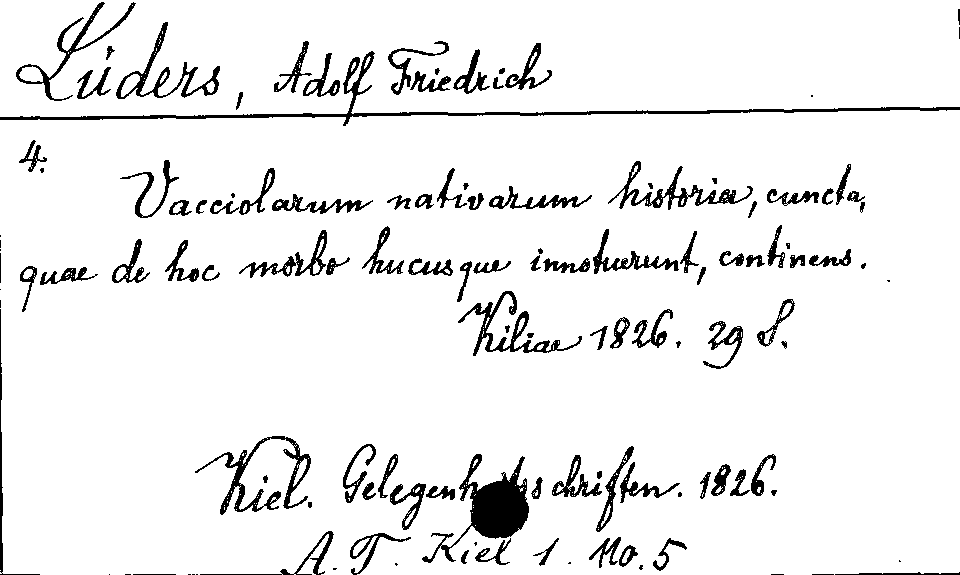 Lüders, Adolf Friedrich
4.
Vacciolarum nativarum historia, cuncta,
quae de hoc morbo hucusque innotuerunt, continens.
Kiliae 1826. 29 S.
Kiel. Gelegenheitsschriften. 1826.
A. T. Kiel 1. No. 5